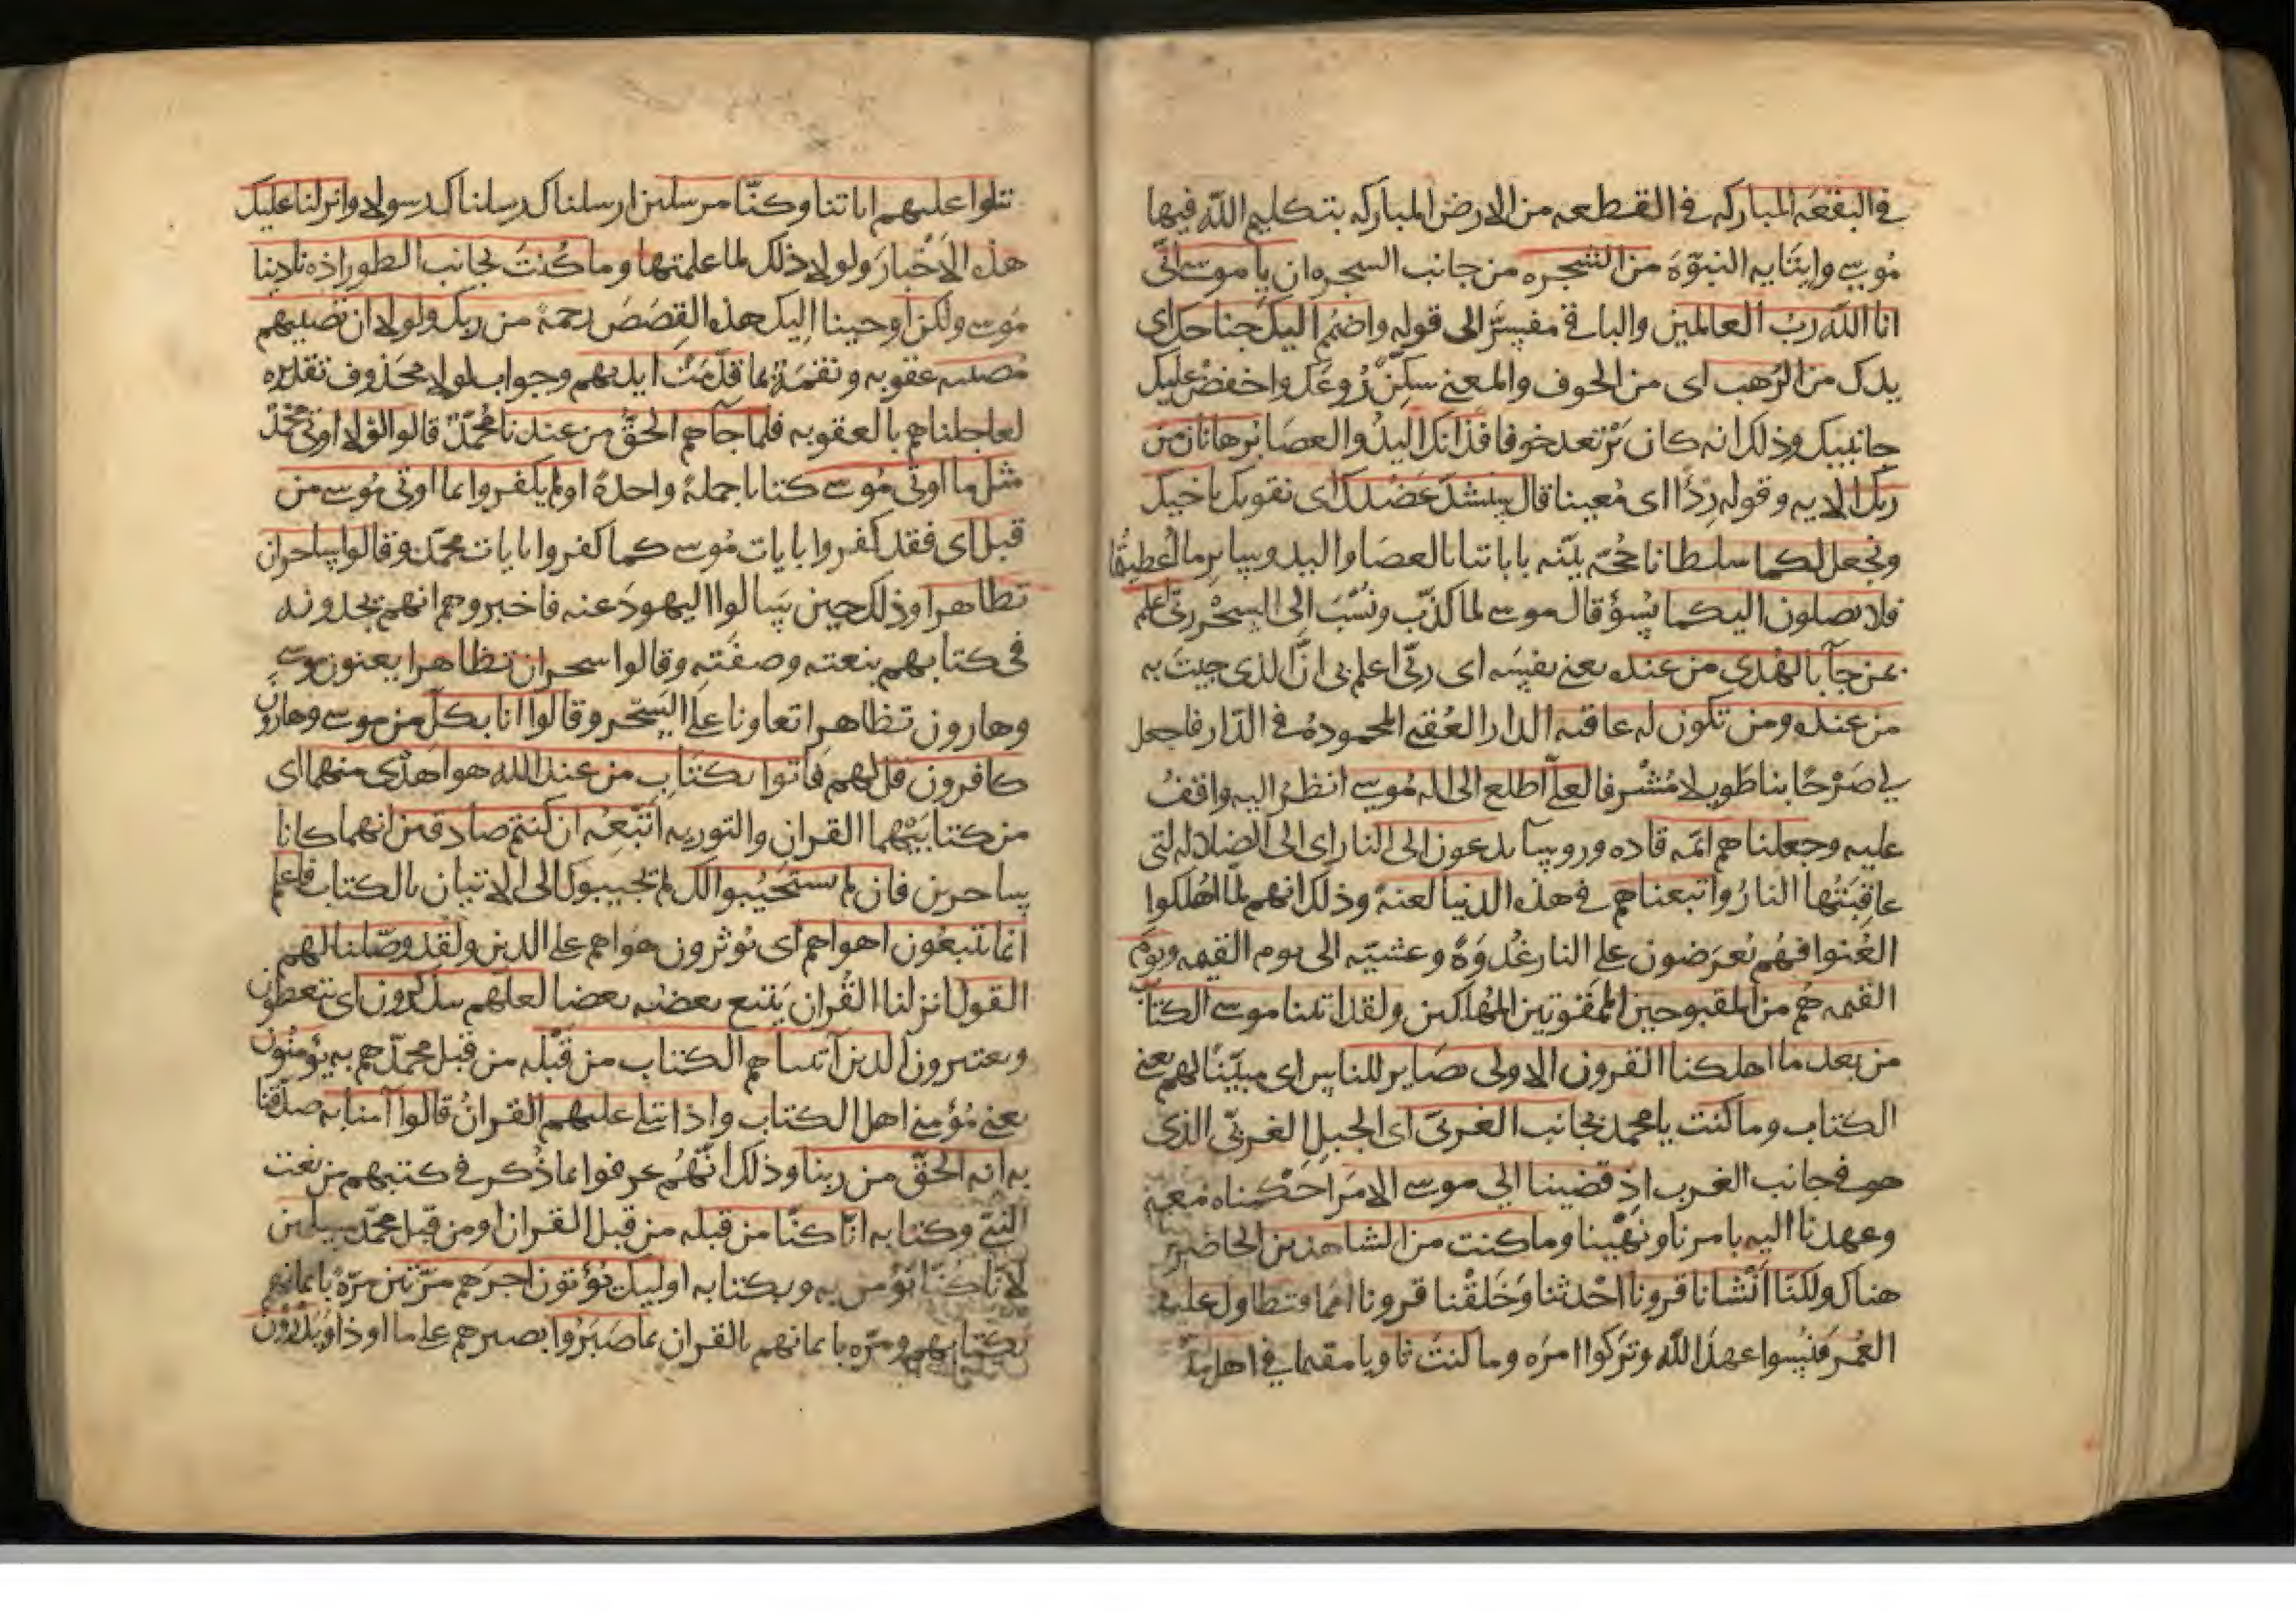 في البقعه المباركه في القطعه من الارض المباركه بتكليم الله فيها
موسى وايتايه النبوّة من الشجره من جانب الشجره ان يا موسى انّي
انا الله ربّ العالمين والباقي مفسّر الى قوله واضمم اليك جناحك اي
يدك من الرهب اي من الخوف والمعنى سكّن روعك واخفض عليك
جانبيك وذلك انه كان يرتعد خوفا فذانك اليد والعصا برهانان من
ربك الايه وقوله ردًا اي معينا قال سنشد عضدك اي نقويك باخيك
ونجعل لكما سلطانا حجّة بيّنه باياتنا بالعصا واليد وساير ما اعطيتما
فلا يصلون اليكما بسوء قال موسى لما كذّب ونسب الى السحر ربّي اعلم
بمن جآ بالهدى من عنده يعني نفسه اي ربّي اعلم بي انّ الذي جيت به
من عنده ومن تكون له عاقبه الدار العقبى المحموده في الدّار فاجعل
لي صرحًا بنا طويلا مشرفا لعلّي اطلع الى اله موسى انظر اليه واقف
عليه وجعلناهم ائمّه قاده وروسآ يدعون الى النار اي الى الضلاله التي
عاقبتها النار واتبعناهم في هذه الدنيا لعنة وذلك انهم لمّا اهلكوا
لعنوا فهم يعرضون على النار غدوة وعشيّه الى يوم القيمه ويوم
القيمه هم من المقبوحين الممقوتين المهلكين ولقد اتينا موسى الكتاب
من بعد ما اهلكنا القرون الاولى بصاير للناس اي مبيّنًا لهم يعني
الكتاب وما كنت يا محمد بجانب الغربيّ اي الجبل الغربيّ الذي
هو في جانب الغرب اذ قضينا الى موسى الامر احكمناه معه
وعهدنا اليه بامرنا ونهينا وما كنت من الشاهدين الحاضرين
هناك ولكنّا انشانا قرونا احدثنا وخلقنا قرونا امما فتطاول عليهم
العمر فنسوا عهد الله وتركوا امره وما كنت ثاويا مقيما في اهل مدين
تتلوا عليهم اياتنا وكنّا مرسلين ارسلناك رسلناك رسولا وانزلنا عليك
هذه الاخبار ولولا ذلك لما علمتها وما كنت بجانب الطور اذ نادينا
موسى ولكن اوحينا اليك هذه القصص رحمة من ربك ولولا ان تصيبهم
مصيبه عقوبه ونقمة بما قدّمت ايديهم وجواب لولا محذوف تقديره
لعاجلناهم بالعقوبه فلما جآهم الحقّ من عندنا محمّد قالوا لولا اوتي محمّد
مثل ما اوتي موسى كتابا جملة واحدة اولم يكفروا بما اوتي موسى من
قبل اي فقد كفروا بايات موسى كما كفروا بايات محمّد وقالوا ساحران
تظاهرا وذلك حين سالوا اليهود عنه فاخبروهم انهم يجدونه
في كتابهم بنعته وصفته وقالوا سحران تظاهرا يعنون موسى
وهارون تظاهرا تعاونا على السّحر وقالوا انا بكلّ من موسى وهارون
كافرون قل لهم فاتوا بكتاب من عند الله هو اهدى منهما اي
من كتابيهما القران والتوريه اتّبعه ان كنتم صادقين انهما كانا
ساحرين فان لم يستجيبوا لك لم يجيبوك الى الاتيان بالكتاب فاعلم
انما يتبعون اهواهم اي يوثرون هواهم على الدين ولقد وصّلنا لهم
القول انزلنا القران يتبع بعضه بعضا لعلهم يتذكرون اي يتعظون
ويعتبرون الذين آتيناهم الكتاب من قبله من قبل محمّد هم به يؤمنون
يعني مؤمني اهل الكتاب واذا يتلى عليهم القران قالوا آمنا به صدّقنا
به انه الحقّ من ربنا وذلك انّهم عرفوا بما ذكر في كتبهم من نعت
النبيّ وكتابه انّا كنّا من قبله من قبل القران او من قبل محمّد مسلمين
لانّا كنّا نؤمن به وبكتابه اوليك يؤتون اجرهم مرّتين مرّة بايمانهم
بكتابهم ومرّه بايمانهم بالقران بما صبروا بصبرهم على ما اوذوا ويدرؤن